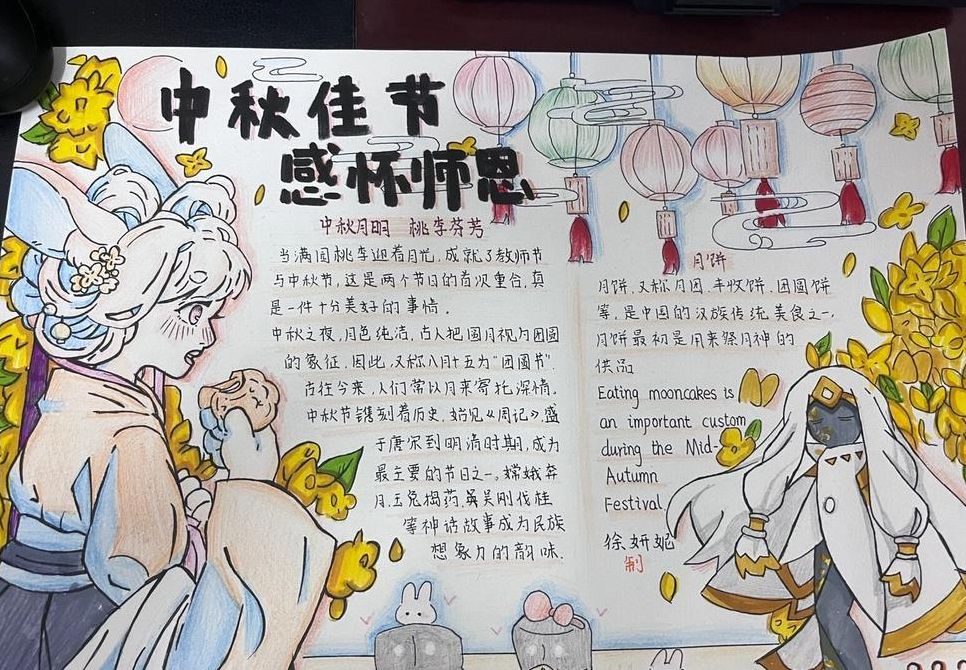 中秋佳节
感怀师恩
中秋月明 桃李芬芳
当满园桃李迎着月光，成就了教师节
与中秋节，这是两个节日的首次重合，真
是一件十分美好的事情。
中秋之夜，月色纯洁，古人把圆月视为团圆
的象征，因此，又称八月十五为“团圆节”.
古往今来，人们常以月来寄托深情。
中秋节镌刻着历史，始见《周记》，盛
于唐宋，到明清时期，成为
最主要的节日之一。嫦娥奔
月，玉兔捣药，吴刚伐桂
等神话故事成为民族
想象力的韵味.
月饼
月饼，又称月团、丰收饼、团圆饼
等，是中国的汉族传统美食之一，
月饼最初是用来祭月神的
供品
Eating mooncakes is
an important custom
during the Mid-
Autumn
Festival.
徐妍妮
制